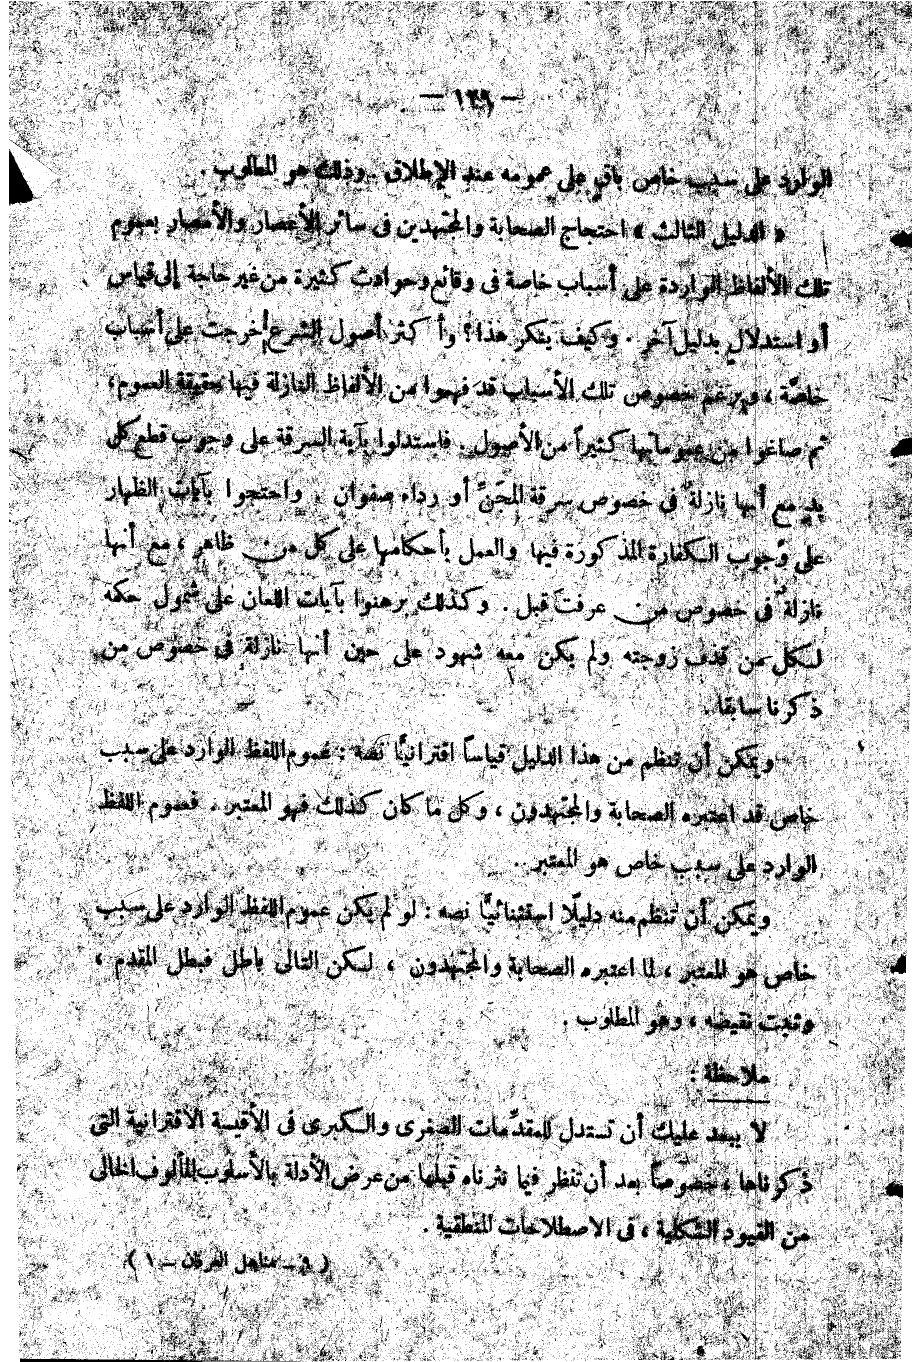 — ١٢٩ —
الوارد على سبب خاص باقٍ على عمومه عند الإطلاق . وذلك هو المطلوب .
« الدليل الثالث » احتجاج الصحابة والمجتهدين فى سائر الأعصار والأمصار بعموم
تلك الألفاظ الواردة على أسباب خاصة فى وقائع وحوادث كثيرة من غير حاجة إلى قياس
أو استدلال بدليل آخر . وكيف ينكر هذا؟ وأكثر أصول الشرع أخرجت على أسباب
خاصَّة ، وبرغم خصوص تلك الأسباب قد فهموا من الألفاظ النازلة فيها حقيقة العموم،
ثم صاغوا من عموماتها كثيراً من الأصول . فاستدلوا بآية السرقة على وجوب قطع كل
يدٍ مع أنها نازلة فى خصوص سرقة المجَنِّ أو رداء صفوان . واحتجوا بآيات الظهار
على وجوب الكفارة المذكورة فيها والعمل بأحكامها على كل من ظاهر ، مع أنها
نازلة فى خصوص من عرفت قبل . وكذلك برهنوا بآيات اللعان على شمول حكمه
لكل من قذف زوجته ولم يكن معه شهود على حين أنها نازلة فى خصوص من
ذكرنا سابقا .
ويمكن أن تنظم من هذا الدليل قياساً اقترانيًّا نصه : عموم اللفظ الوارد على سبب
خاص قد اعتبره الصحابة والمجتهدون ، وكل ما كان كذلك فهو المعتبر . فعموم اللفظ
الوارد على سبب خاص هو المعتبر .
ويمكن أن تنظم منه دليلًا استثنائيًّا نصه : لو لم يكن عموم اللفظ الوارد على سبب
خاص هو المعتبر ، لما اعتبره الصحابة والمجتهدون ، لكن التالى باطل فبطل المقدم ،
وثبت نقيضه ، وهو المطلوب .
ملاحظة :
لا يبعد عليك أن تستدل للمقدِّمات الصغرى والكبرى فى الأقيسة الاقترانية التى
ذكرناها ، خصوصاً بعد أن تنظر فيما نثرناه قبلها من عرض الأدلة بالأسلوب المألوف الخالى
من القيود الشكلية ، فى الاصطلاحات المنطقية .
( ٩ ــ مناهل العرفان ــ ١ )